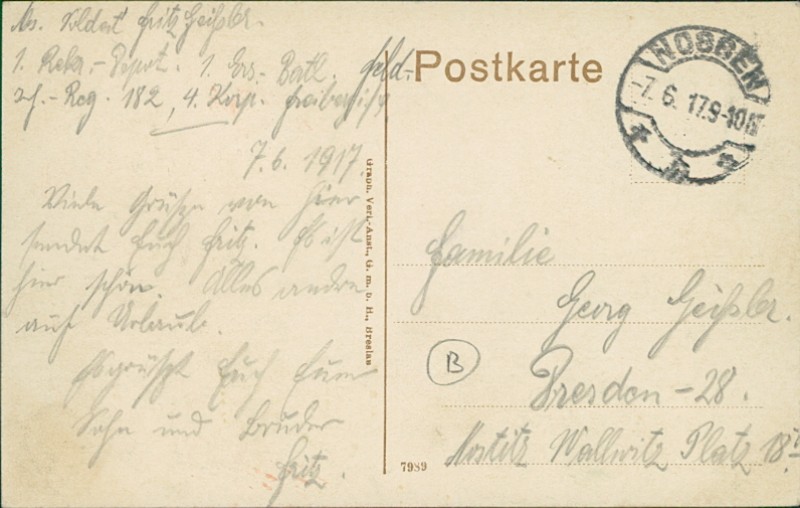 Abs. Soldat Fritz Geißler.
1. Rekr.-Depot. 1. Ers. Batl.
Inf.-Reg. 182, 4. Korp. Freiberg i/S
Feld-Postkarte
NOSSEN
-7.6.17.9-10V
7.6.1917
Viele Grüße von hier
sendet Euch Fritz. Es ist
hier schön. Alles andre
auf Urlaub.
Es grüßt Euch Euer
Sohn und Bruder
Fritz.
Graph. Verl.-Anst., G. m. b. H., Breslau
7989
Familie
Georg Geißler.
B
Dresden-28.
Nostitz Wallwitz Platz 18